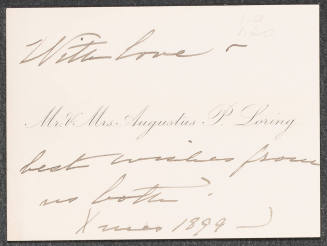 With love ~
Mr. & Mrs. Augustus P. Loring
best wishes from
us both.
Xmas 1899 —